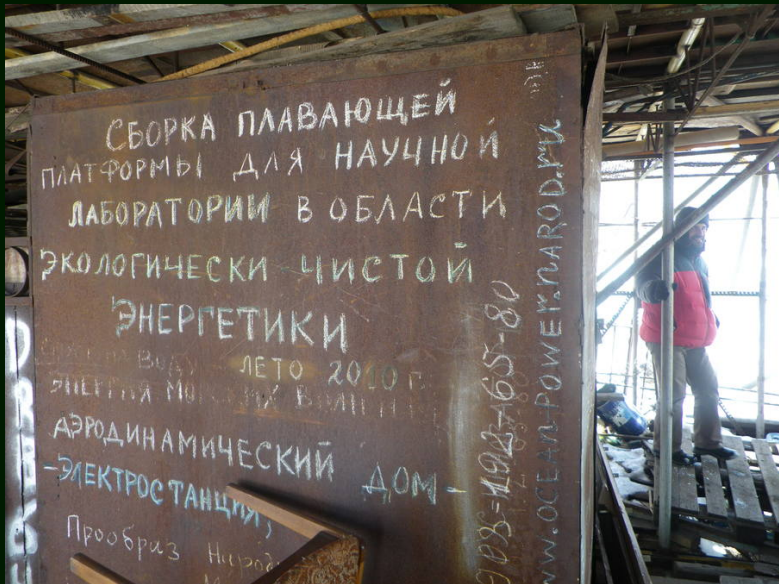 СБОРКА ПЛАВАЮЩЕЙ
ПЛАТФОРМЫ ДЛЯ НАУЧНОЙ
ЛАБОРАТОРИИ В ОБЛАСТИ
ЭКОЛОГИЧЕСКИ ЧИСТОЙ
ЭНЕРГЕТИКИ
ЛЕТО 2010 г.
ЭНЕРГИЯ
АЭРОДИНАМИЧЕСКИЙ ДОМ-
-ЭЛЕКТРОСТАНЦИЯ,
Прообраз
WWW.OCEAN-POWER.NAROD.RU